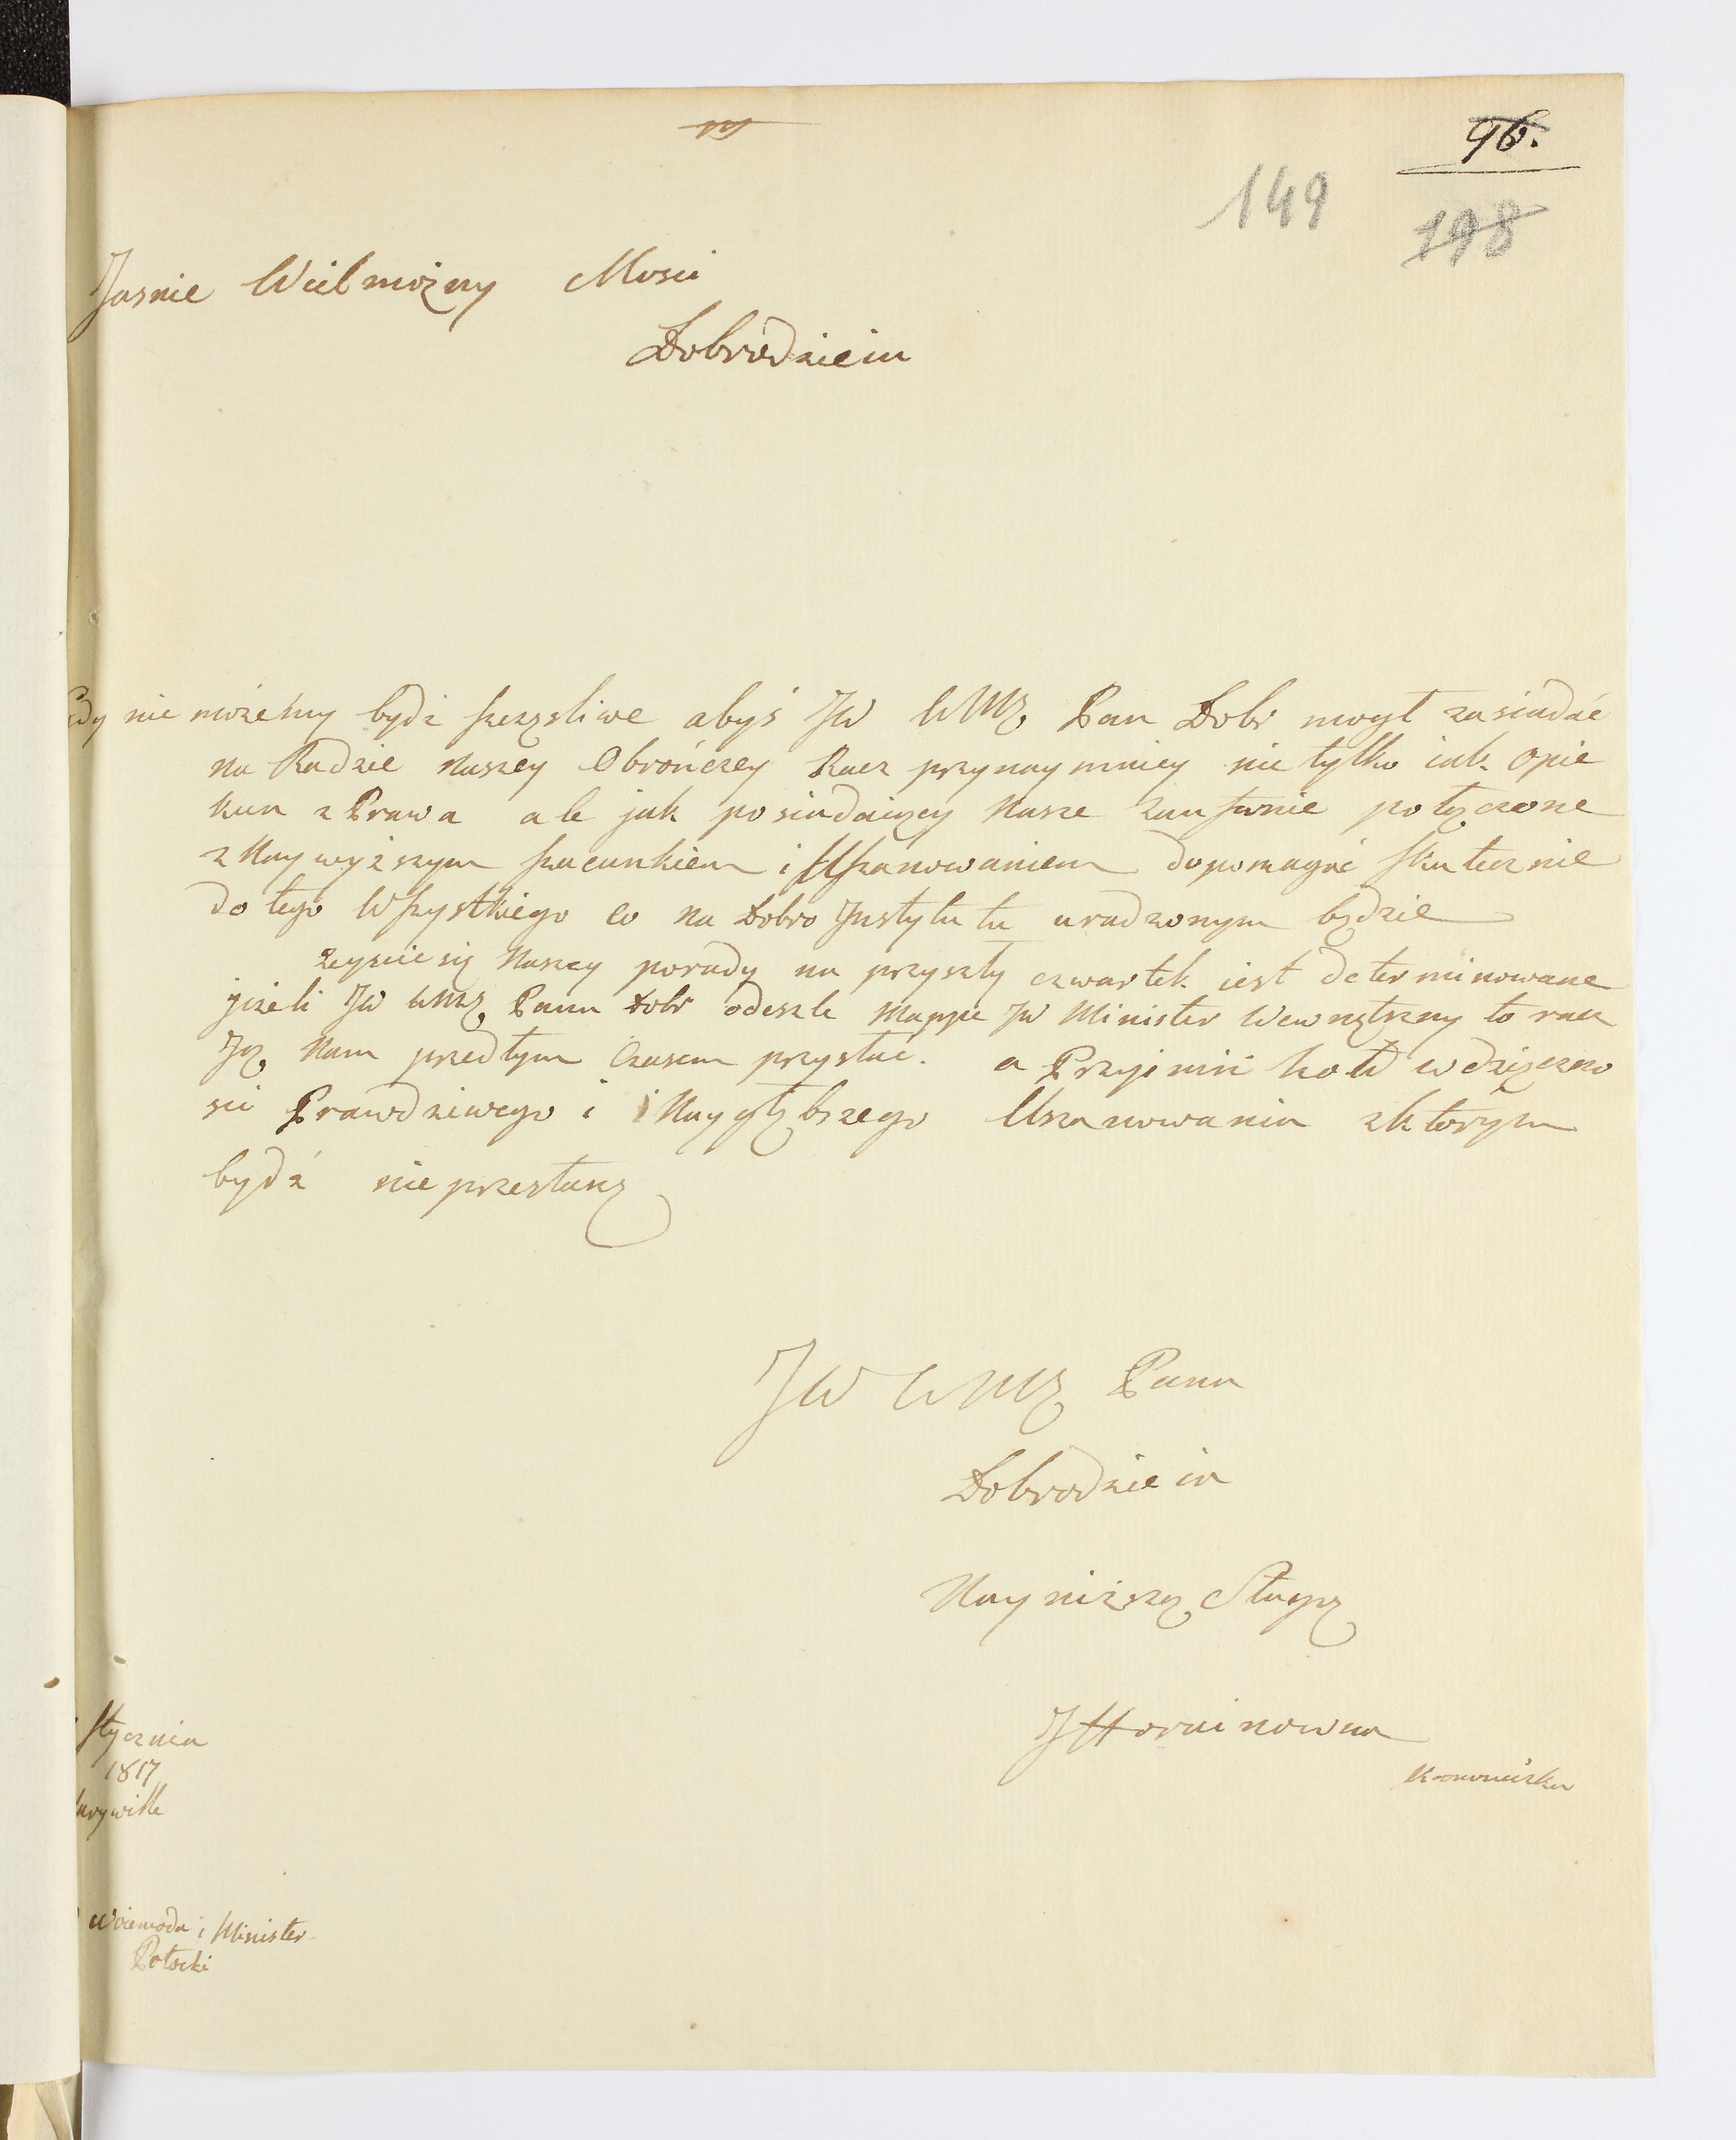 96.
149
198
Jasnie Wielmożny Mosci
Dobrodzieiu
Gdy nie możemy bydź szczęsliwe abyś JW WMę Pan Dobr mogł zasiadać
na Radzie Naszey Obrończey Racz przynaymniey nie tylko iak Opie
kun z Prawa ale jak posiadaiący Nasze Zaufanie połączone
z Naywyższym szacunkiem i Uszanowaniem dopomagać skutecznie
do tego Wszystkiego co na Dobro Instytutu uradzonym będzie
Zeyscie się Naszey porady na przyszły czwartek iest determinowane
jeżeli JW WMę Panu Dobr odeszle Mappe JW Minister Wewnętrzny to racz
Ję Nam przed tym Czasem przysłać. a Przyimii hołd wdzięczno
sci Prawdziwego i Naygłębszego Uszanowania z ktorym
bydź nieprzestanę
JW WMę Pana
Dobrodzieia
Nayniższą Sługą
J Horainowna
Kanoniczka
Stycznia
1817
arywille
Woiewoda i Minister
Potocki